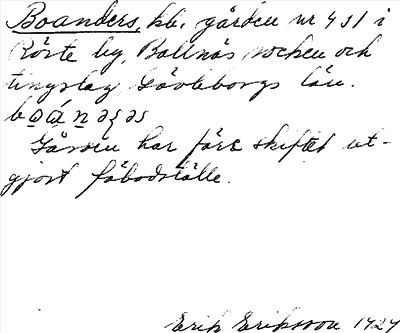 Boanders, hb. gården nr 4 31 i
Rörte by, Bollnäs socken och
tingslag, Gävleborgs län.
Gården har före skiftet ut-
gjort fäbodställe.
Erik Eriksson 1924